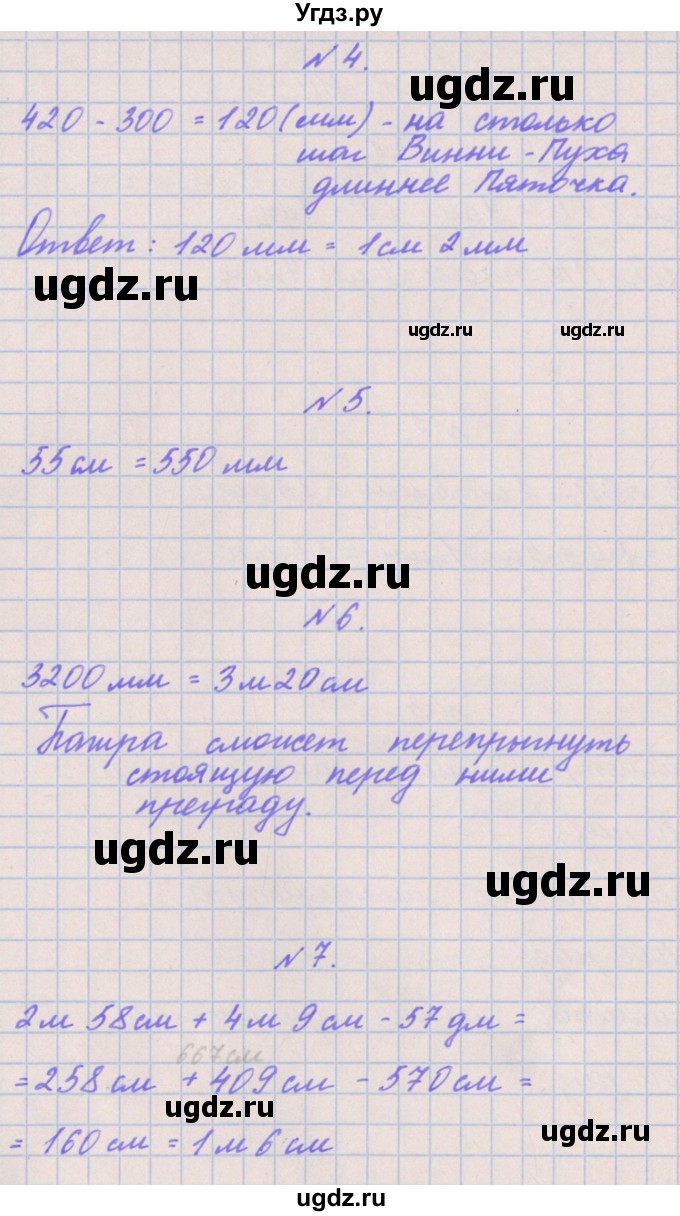 Угдз.ру
№ 4.
ugdz.ru
420 - 300 = 120 (мм) - на столько
шаг Винни - Пуха
длиннее Пяточка.
Ответ : 120 мм = 1 см 2 мм
ugdz.ru
ugdz.ru ugdz.ru
№ 5.
55 см = 550 мм
ugdz.ru
№ 6.
3200 мм = 3 м 20 см
Багира сможет перепрыгнуть
стоящую перед ними
преграду.
ugdz.ru
ugdz.ru
№ 7.
2 м 58 см + 4 м 9 см - 57 дм =
667 см
= 258 см + 409 см - 570 см =
ugdz.ru
ugdz.ru
= 160 см = 1 м 6 см
ugdz.ru